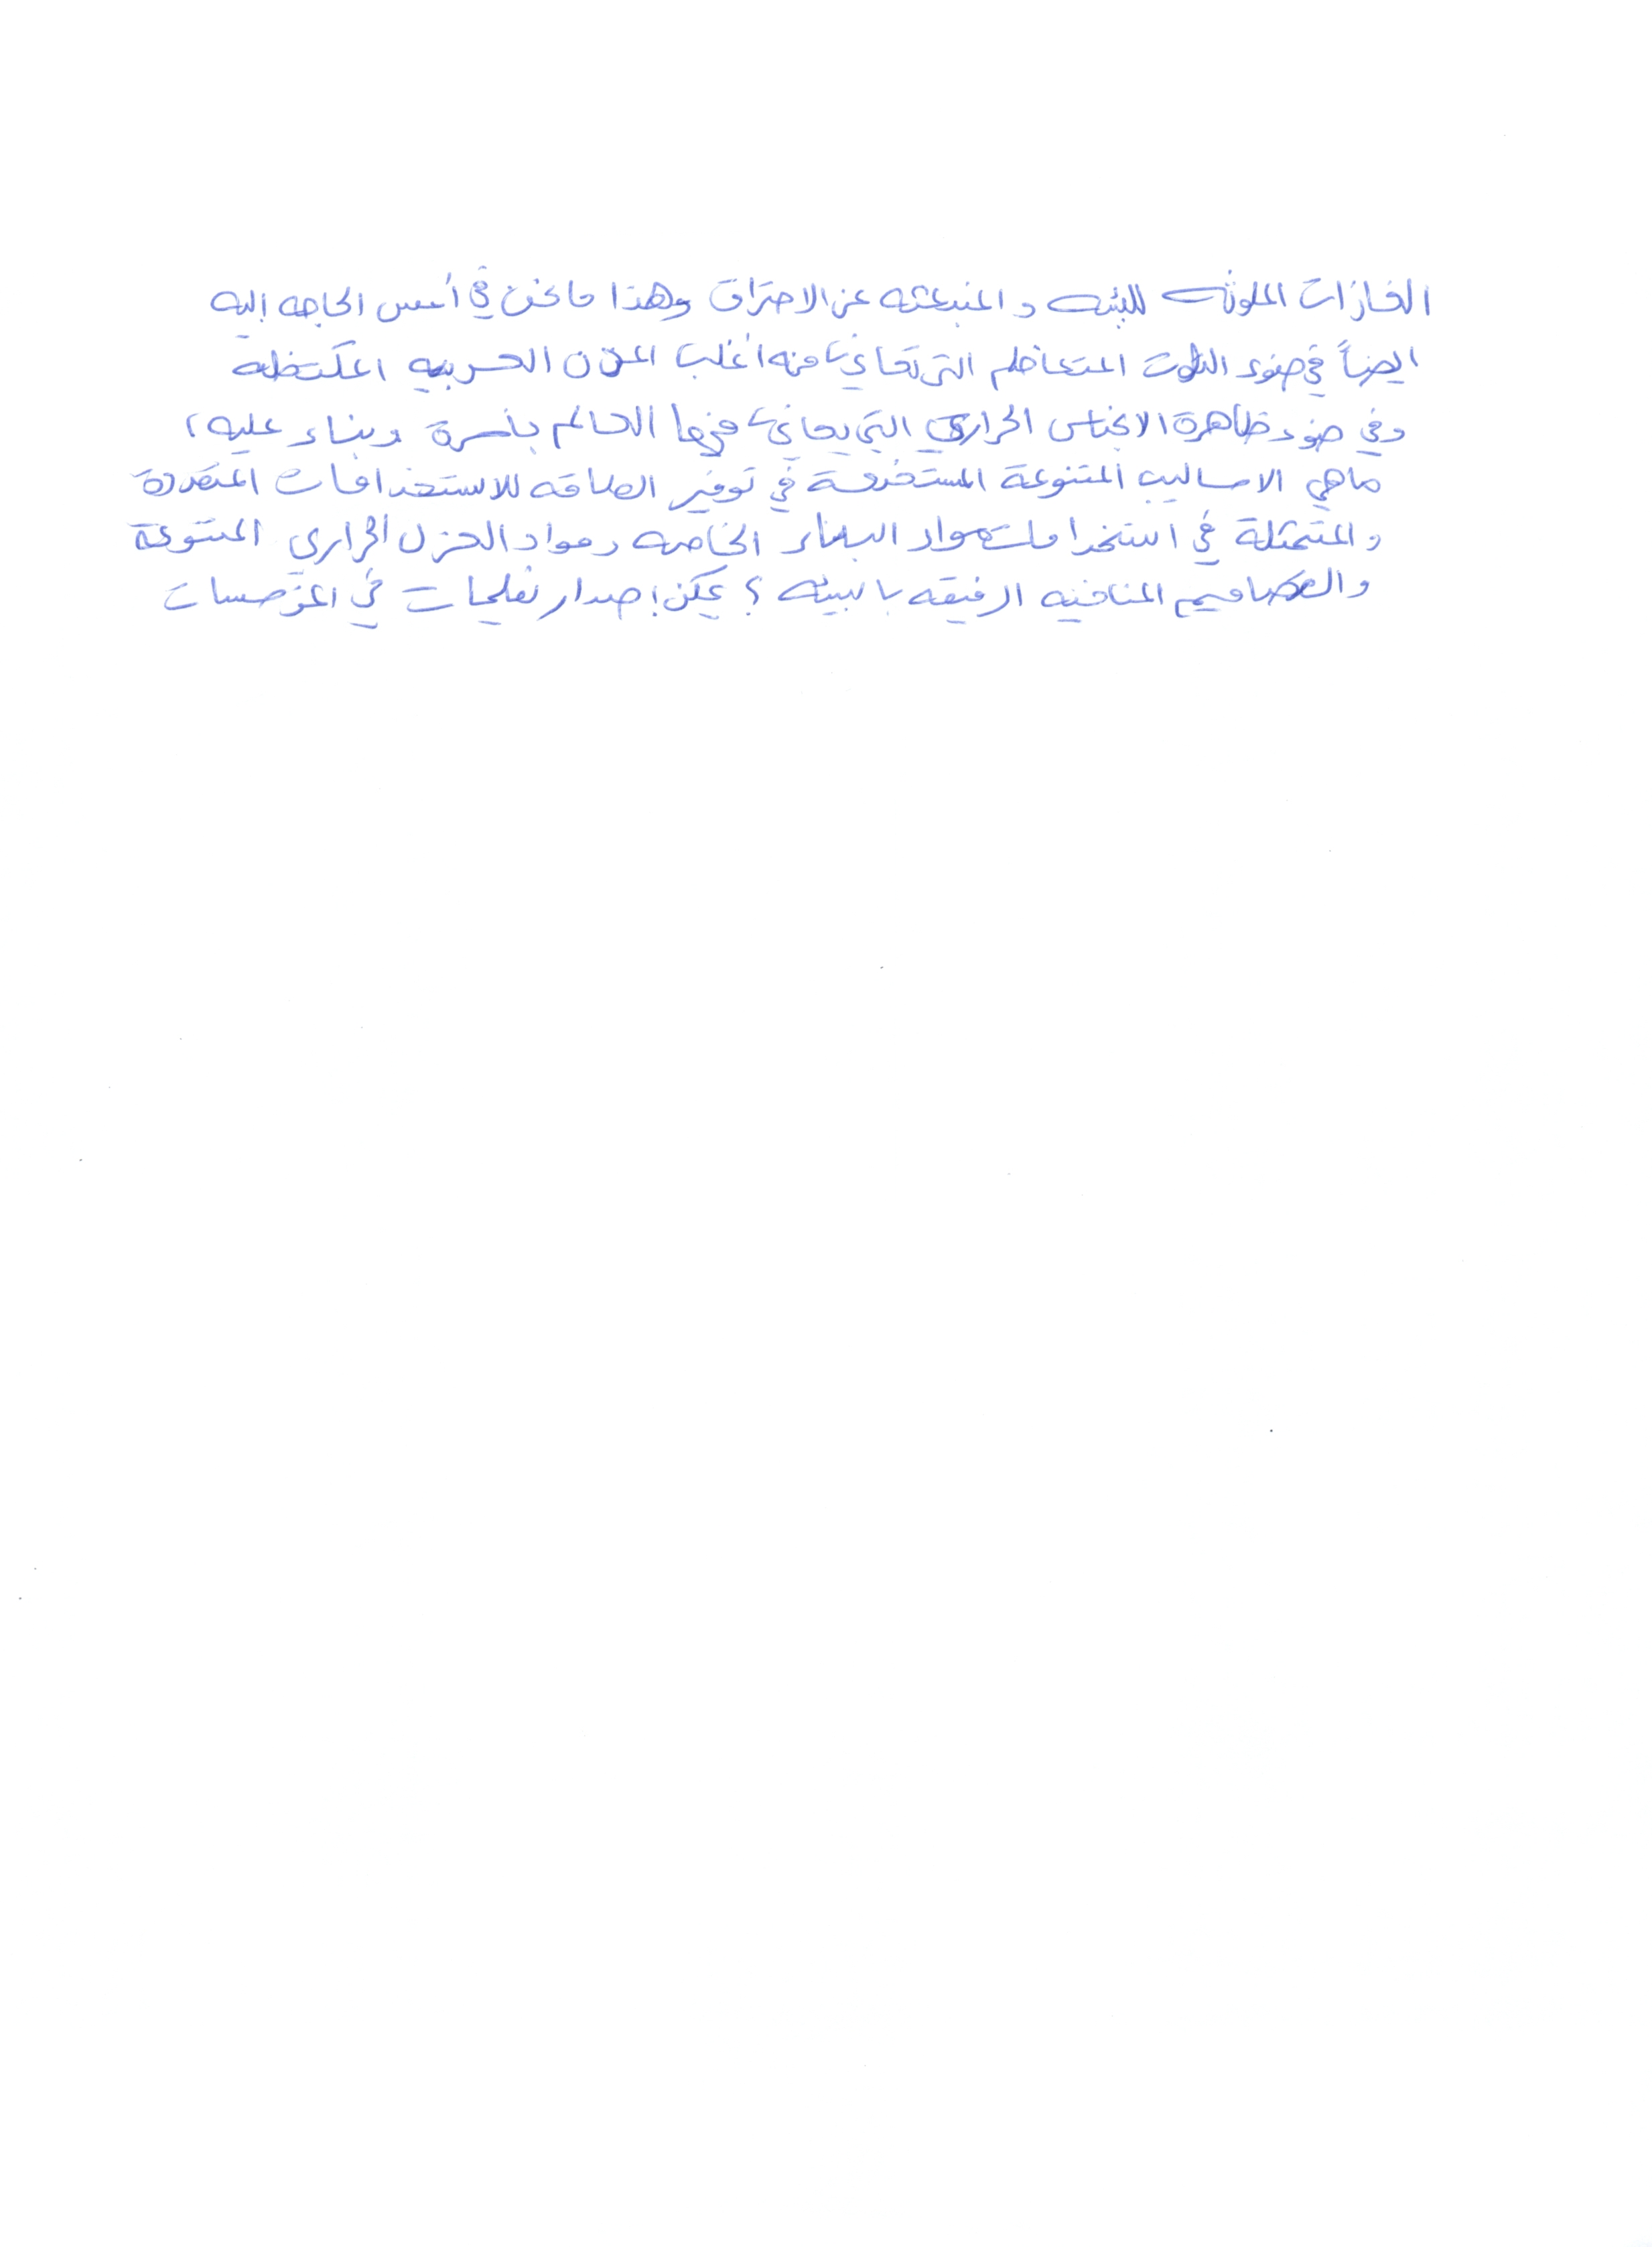 الغازات الملوثه للبيئه و المنبعثه عن الاحتراق وهذا ما نحن في أمس الحاجه إليه
ايضاً في ضوء التلوث المتعاظم التي تعاني منه أغلب المدن العربيه المكتظة
وفي ضوء ظاهرة الانحباس الحراري التي يعاني منها العالم بأسرة وبناء عليه ،
ماهي الاساليب المتنوعة المستخدمة في توفير الطاقه للاستخدامات المتعددة
والمتمثلة في استخدامات مواد البناء الخاصه ومواد العزل الحراري المتنوعة
والتصاميم المناخيه الرفيقه بالبيئه ؟ يمكن إصدار تعليمات في المؤسسات